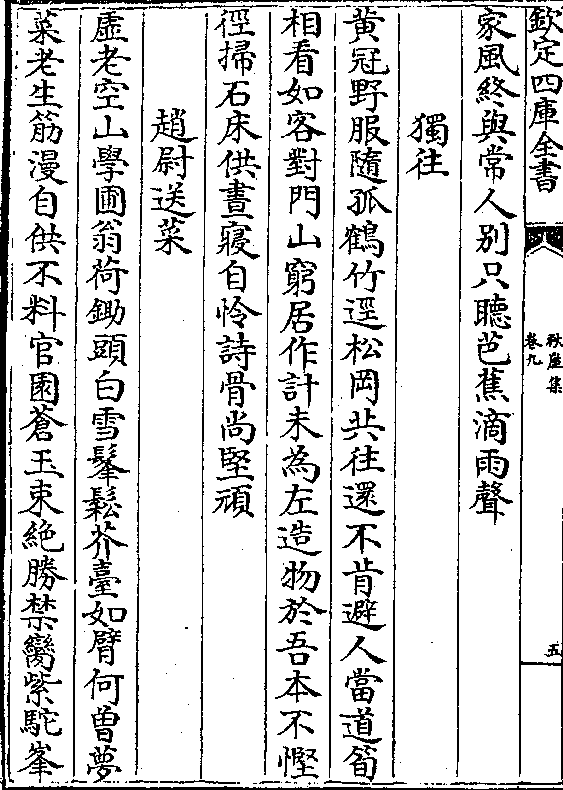 欽定四庫全書
秋崖集
卷九
五
家風終與常人別只聽芭蕉滴雨聲
獨往
黄冠野服隨孤鶴竹逕松岡共往還不肯避人當道筍
相看如客對門山窮居作計未為左造物於吾本不慳
徑掃石床供晝寢自怜詩骨尚堅頑
趙尉送菜
虛老空山學圃翁荷鋤頭白雪鬅鬆芥臺如臂何曾夢
菜老生筋漫自供不料官園蒼玉束絶勝禁臠紫駝峯